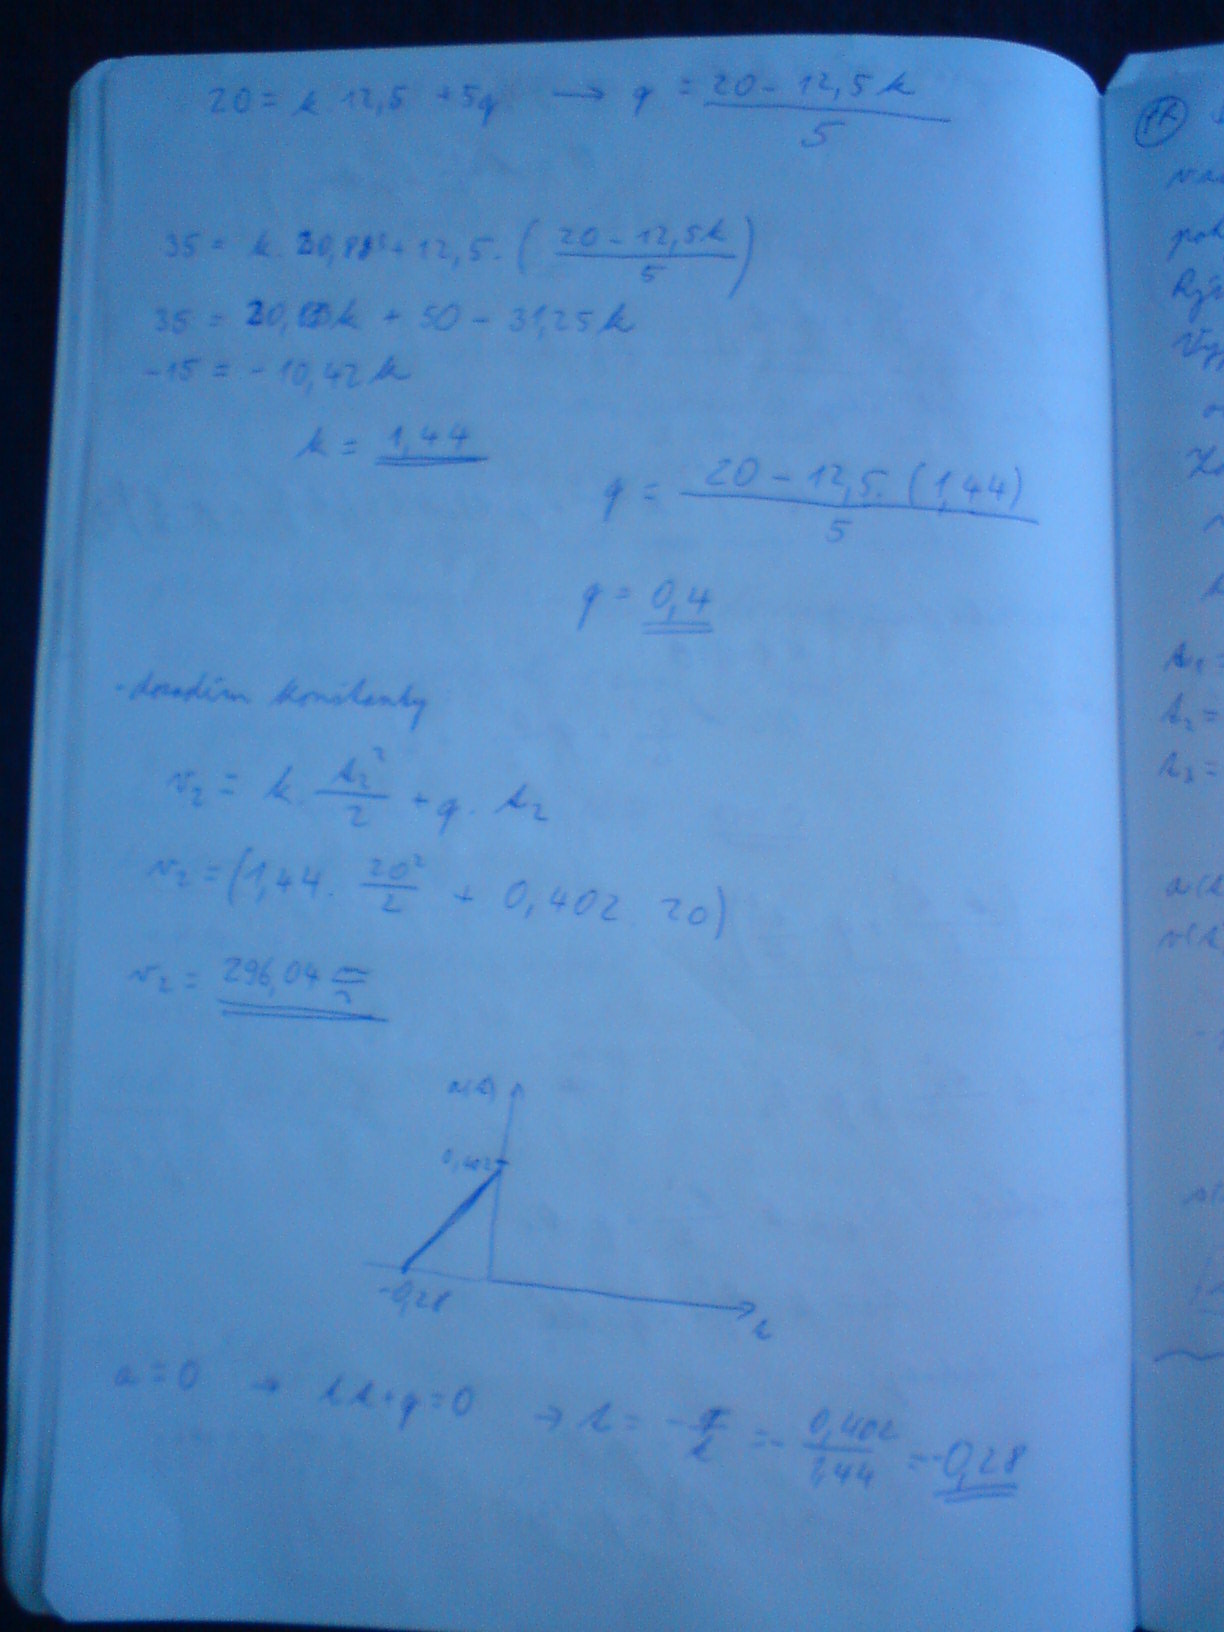 20 = k 12,5 + 5q → q = (20 - 12,5k)/5
35 = k. 20,83 + 12,5. ( (20 - 12,5k)/5 )
35 = 20,83k + 50 - 31,25k
-15 = -10,42k
k = 1,44
q = (20 - 12,5. (1,44))/5
q = 0,4
- dosadím konstanty
v₂ = k. t₂²/2 + q. t₂
v₂ = (1,44. 20²/2 + 0,402. 20)
v₂ = 296,04 m/s
a(t)
0,402
-0,28
t
a = 0 → kt+q=0 → t = -q/k = - 0,402/1,44 = -0,28
t₁ =
t₂ =
t₃ =